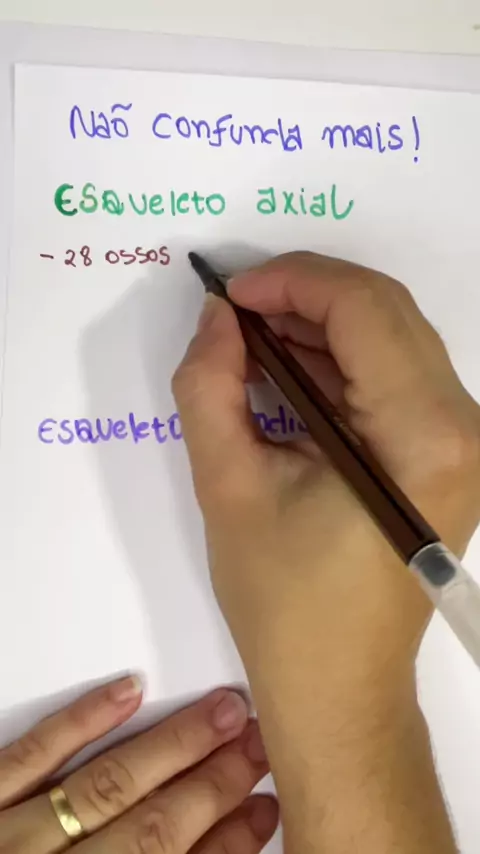 Não confunda mais!
Esqueleto axial
- 28 ossos
Esqueleto